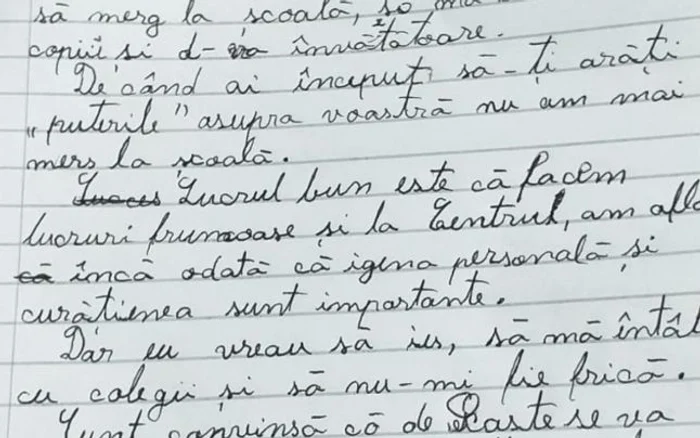 să merg la școală, să
copiii si d-na învățătoare.
De când ai început să-ți arăți
„puterile" asupra voastră nu am mai
mers la școală.
Lucrul bun este că facem
lucruri frumoase și la Centrul, am afla
că încă odată că igena personală și
curățienea sunt importante.
Dar eu vreau să ies, să mă întâl
cu colegii și să nu-mi fie frică.
Sunt convinsă că de Paște se va